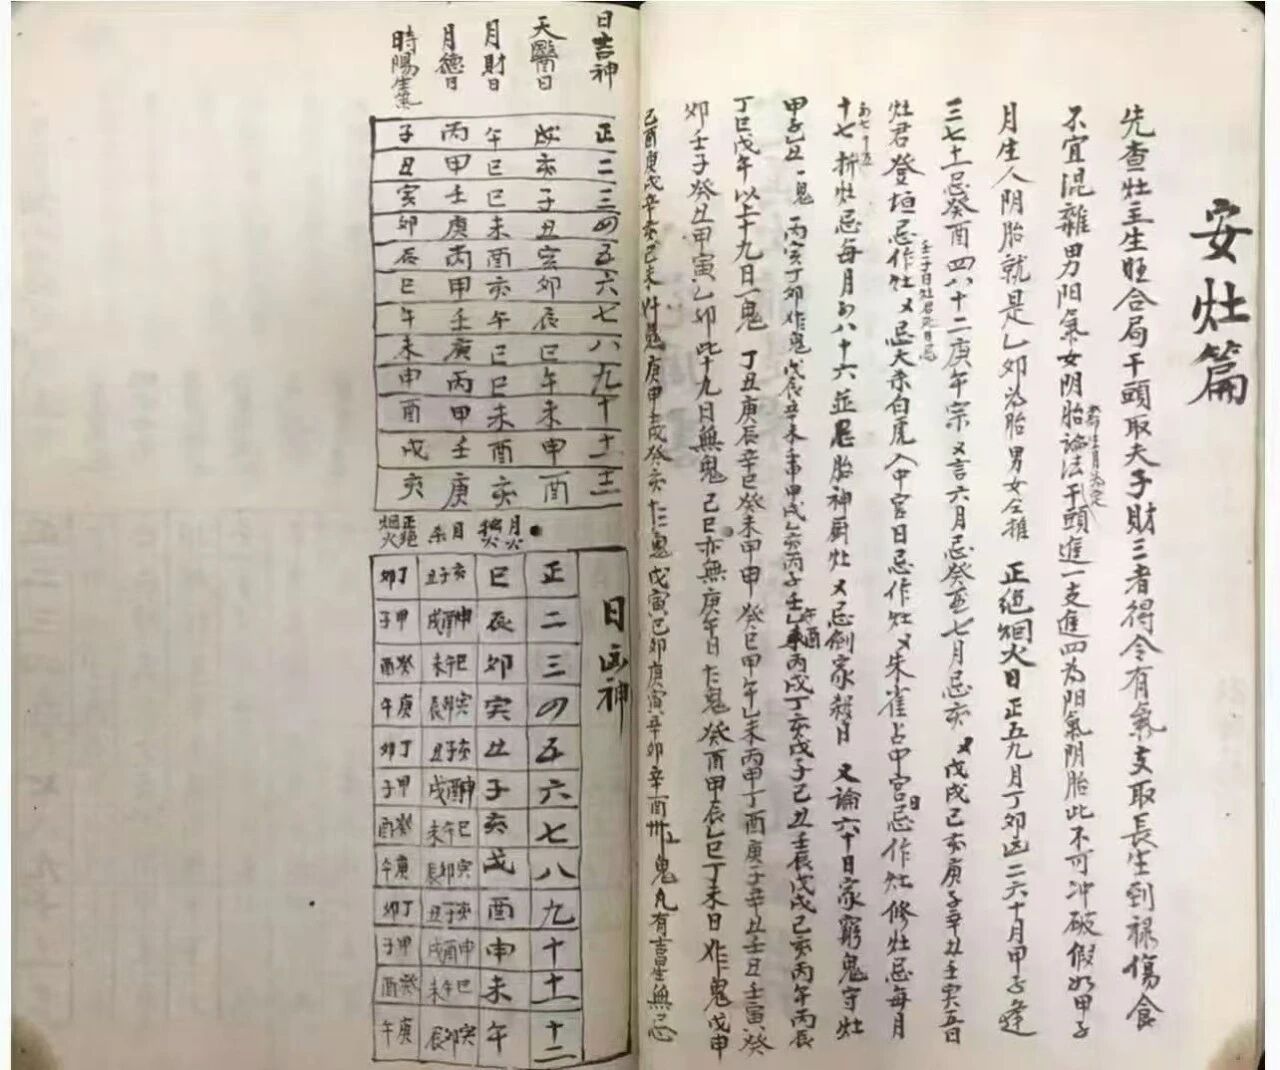 安灶篇
先查灶主生旺合局干頭取天子財三者得令有氣支取長生到禄傷食
不宜混雜男阳氣女阴胎論法干頭進一支進四为阳氣阴胎此不可冲破假如甲子
月生人阴胎就是乙卯为胎男女仝推 正絶烟火日正五九月丁卯 二六十月甲子逢
三七十一忌癸酉四八十二庚午宗又言六月忌癸亥七月忌亥又戊戌己亥庚子辛丑壬寅五日
灶君登垣忌作灶又忌大杀白虎入中宫日忌作灶又朱雀占中宫日忌作灶修灶忌每月
壬子日灶君死日忌
十七折灶忌每月初八十六並忌胎神厨灶又忌倒家殺月 又論六十日家窮鬼守灶
初七十五
甲子乙丑一鬼 丙寅丁卯作鬼戊辰辛未壬申甲戌乙亥丙子壬午乙酉丙戌丁亥戊子己丑壬辰戊戌己亥丙午丙辰
丁巳戊午以上十九日一鬼 丁丑庚辰辛巳癸未甲申 癸巳甲午乙未丙申丁酉庚子辛丑壬丑壬寅癸
卯壬子癸丑甲寅乙卯此十九日無鬼 己巳亦無庚午日 鬼癸酉甲辰乙巳丁未日作鬼戊申
己酉庚戌辛亥己未 鬼庚申壬戌癸亥 鬼戊寅己卯庚寅辛卯辛酉卅 鬼凡有吉星無忌
日吉神 正 二 三 四 五 六 七 八 九 十 十一 十二
天醫日 戌 亥 子 丑 亥 卯 辰 巳 午 未 申 酉
月財日 午 巳 巳 未 酉 亥 午 巳 巳 未 酉 亥
月德日 丙 甲 壬 庚 丙 甲 壬 庚 丙 甲 壬 庚
時陽生氣 子 丑 寅 卯 辰 巳 午 未 申 酉 戌 亥
日凶神
正 二 三 四 五 六 七 八 九 十 十一 十二
月火独火 巳 辰 卯 寅 丑 子 亥 戌 酉 申 未 午
月杀 亥子丑 申酉戌 巳午未 寅卯辰 亥子丑 申酉戌 巳午未 寅卯辰 亥子丑 申酉戌 巳午未 寅卯辰
正絕烟火 丁卯 甲子 癸酉 庚午 丁卯 甲子 癸酉 庚午 丁卯 甲子 癸酉 庚午